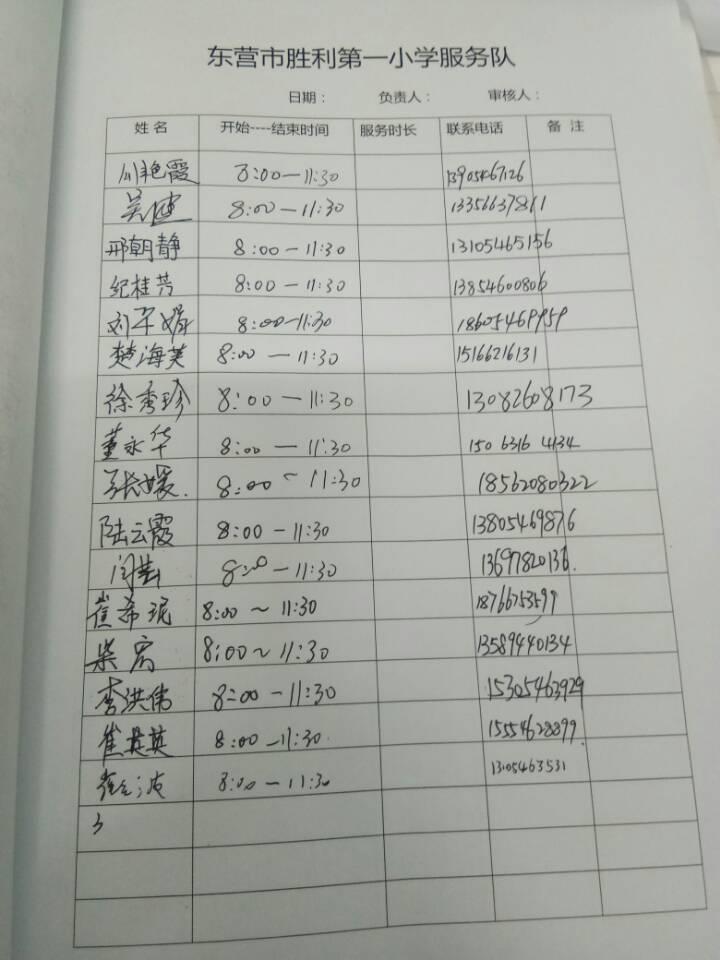 东营市胜利第一小学服务队
日期： 负责人： 审核人：
姓名 开始----结束时间 服务时长 联系电话 备注
艳霞 8:00—11:30 13905467126
吴健 8:00—11:30 13356637811
邢朝静 8:00—11:30 13105465156
纪桂芳 8:00—11:30 13854600806
刘娟 8:00—11:30 18605469959
楚海芙 8:00—11:30 15166216131
徐秀珍 8:00—11:30 13082608173
董永华 8:00—11:30 150 6316 4134
张媛. 8:00~11:30 18562080322
陆云霞 8:00—11:30 13805469876
闫 8:00—11:30 13697820136.
崔希珉 8:00~11:30 18766753599
柴宏 8:00~11:30 13589440134
李洪伟 8:00—11:30 15305463929
崔英 8:00—11:30. 15554628899.
8:00—11:30 13105463531